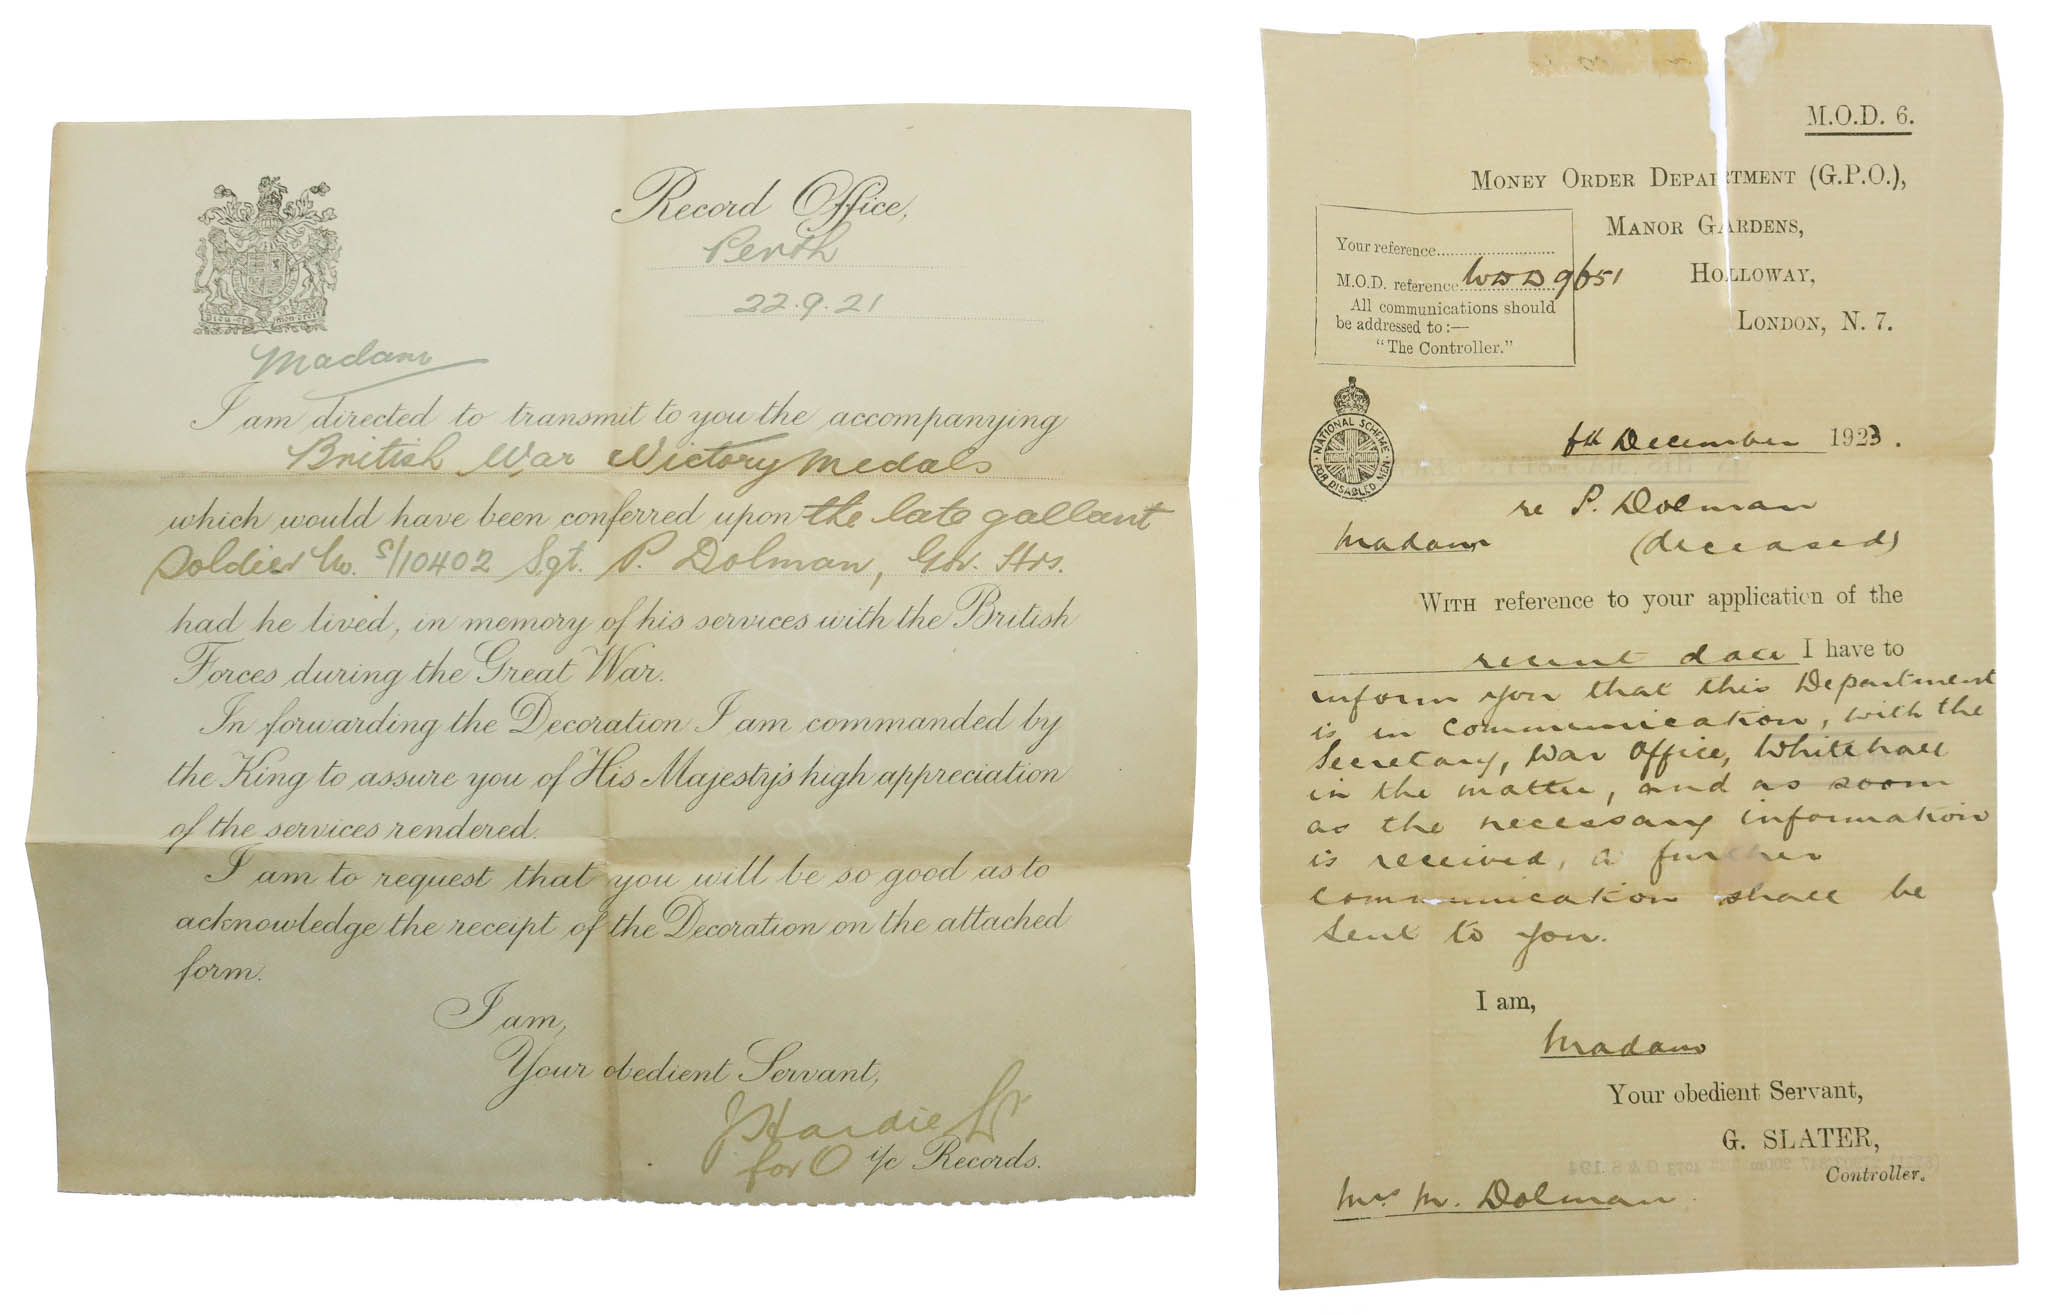 Record Office,
Perth
22.9.21
DIEU ET MON DROIT
Madam
I am directed to transmit to you the accompanying
British War Victory Medals
which would have been conferred upon the late gallant
Soldier No. S/10402 Sgt. P. Dolman, Gor. Hrs.
had he lived, in memory of his services with the British
Forces during the Great War.
In forwarding the Decoration I am commanded by
the King to assure you of His Majesty's high appreciation
of the services rendered.
I am to request that you will be so good as to
acknowledge the receipt of the Decoration on the attached
form.
I am,
Your obedient Servant,
J Hardie Lt
for O i/c Records.
M.O.D. 6.
MONEY ORDER DEPARTMENT (G.P.O.),
MANOR GARDENS,
HOLLOWAY,
LONDON, N. 7.
Your reference
M.O.D. reference WDD 9/651
All communications should
be addressed to:—
"The Controller."
NATIONAL SCHEME FOR DISABLED MEN
6th December 1923.
re P. Dolman
Madam (deceased)
WITH reference to your application of the
recent date I have to
inform you that this Department
is in communication, with the
Secretary, War Office, Whitehall
in the matter, and as soon
as the necessary information
is received, a further
communication shall be
sent to you.
I am,
Madam
Your obedient Servant,
G. SLATER,
Controller.
Mrs M. Dolman